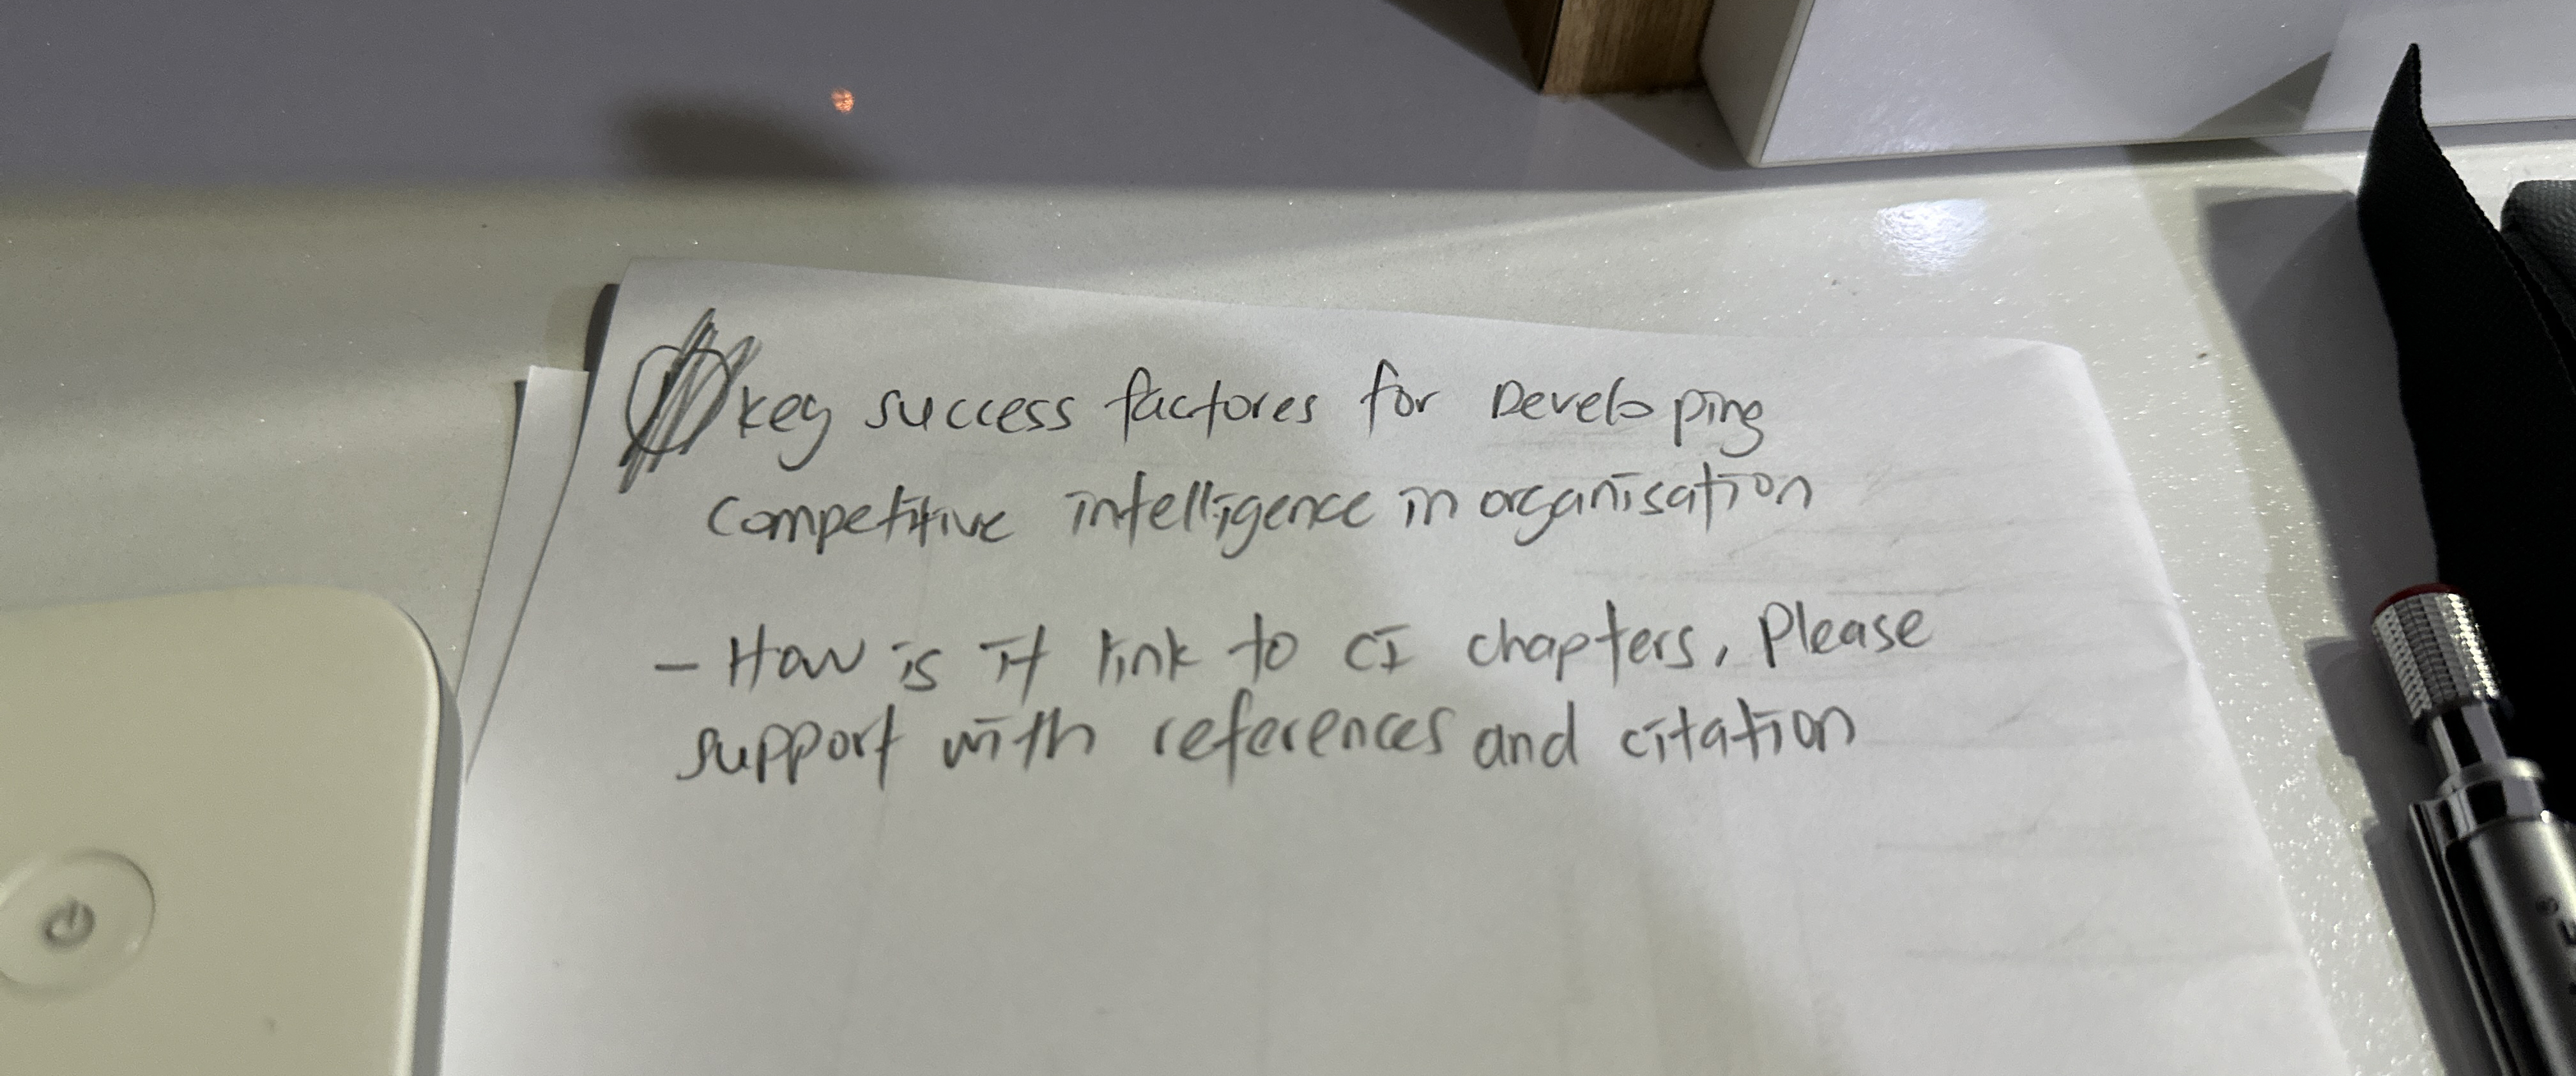 key success factores for Developing
competitive intelligence in organisation
- How is it link to CI chapters, Please
support with references and citation